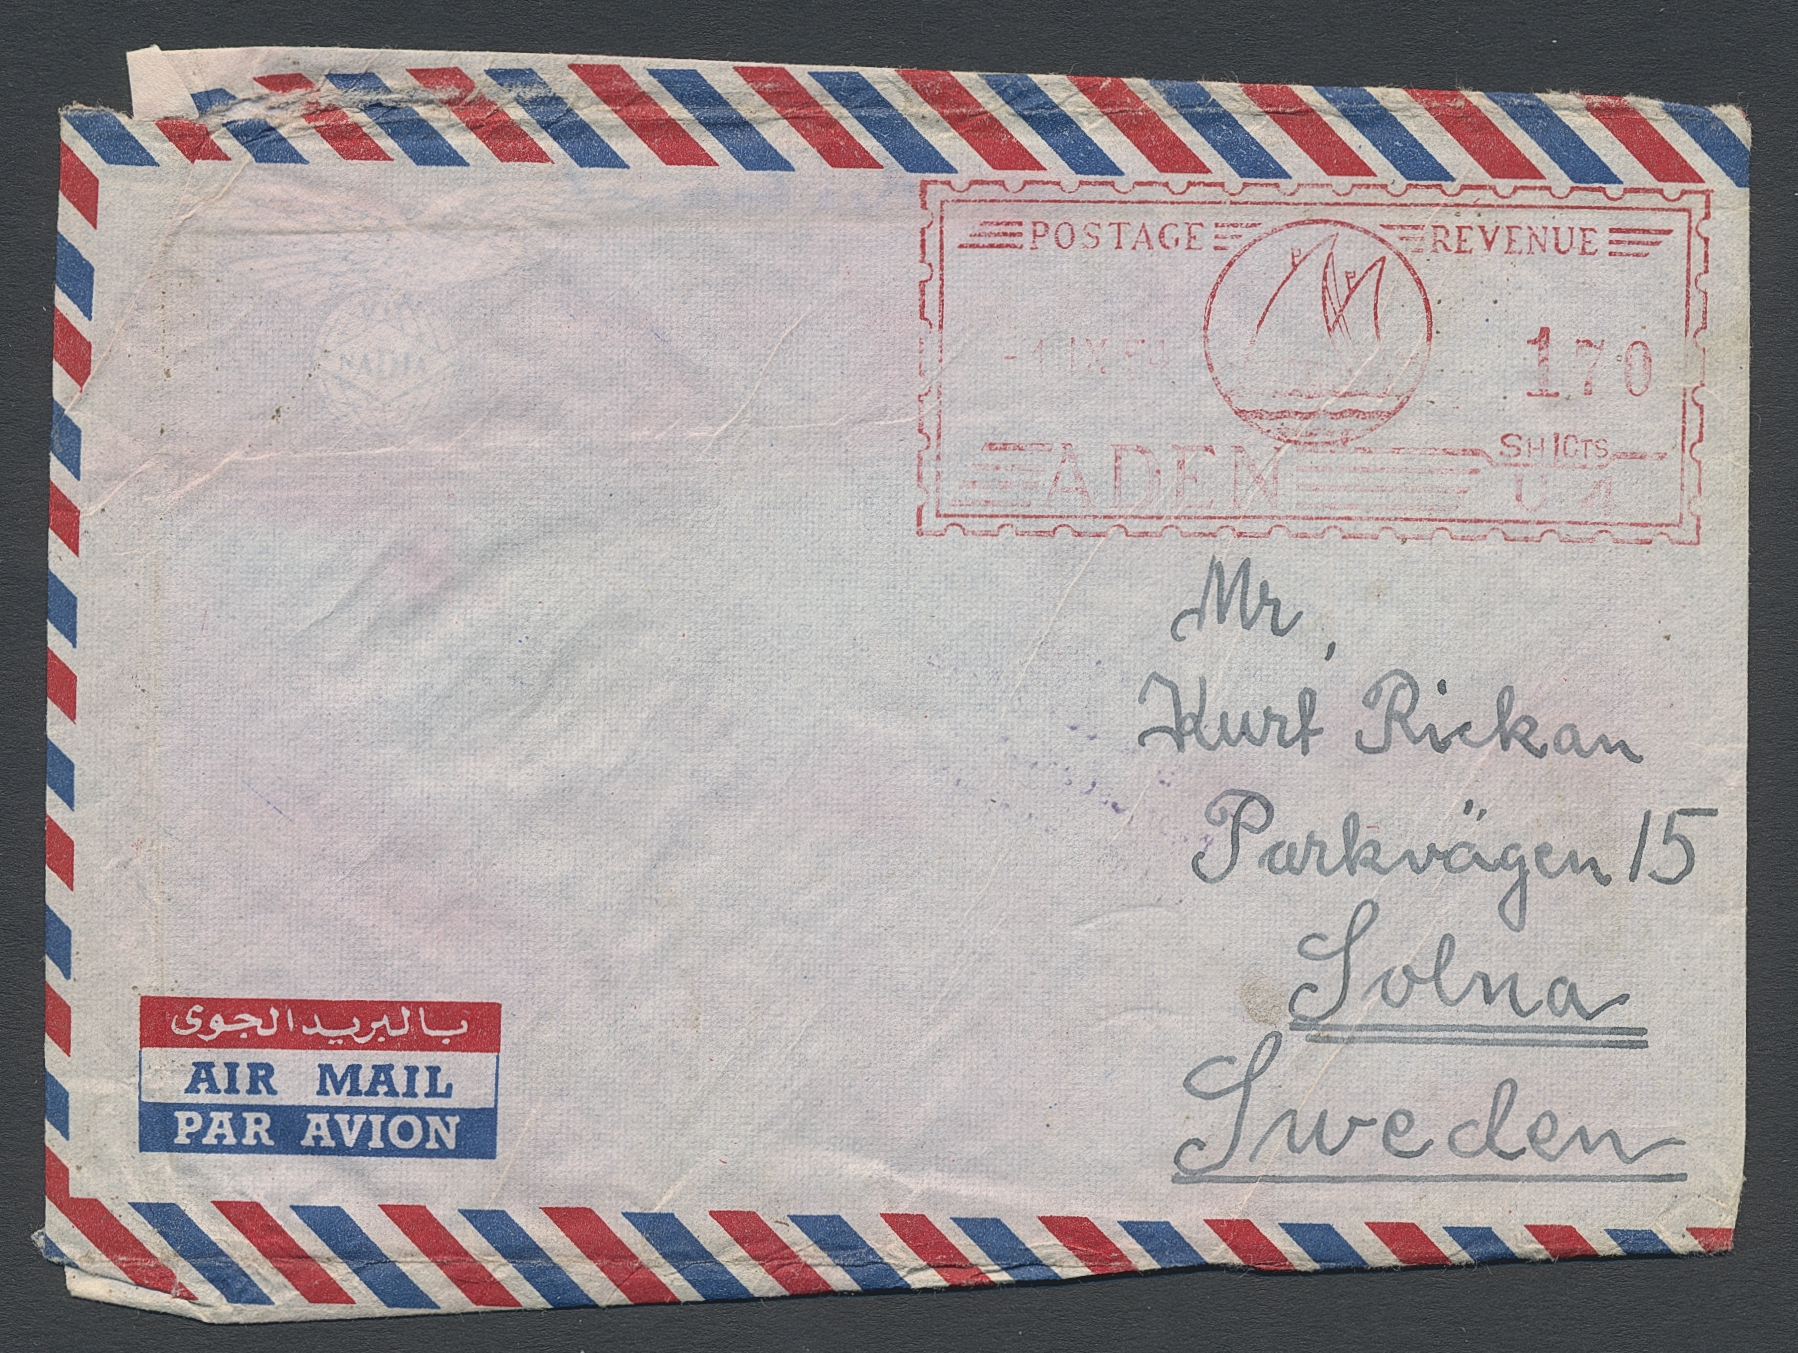 POSTAGE REVENUE
170
SH CTS
ADEN
Mr,
Kurt Rickan
Parkvägen 15
Solna
Sweden
بالبريد الجوى
AIR MAIL
PAR AVION